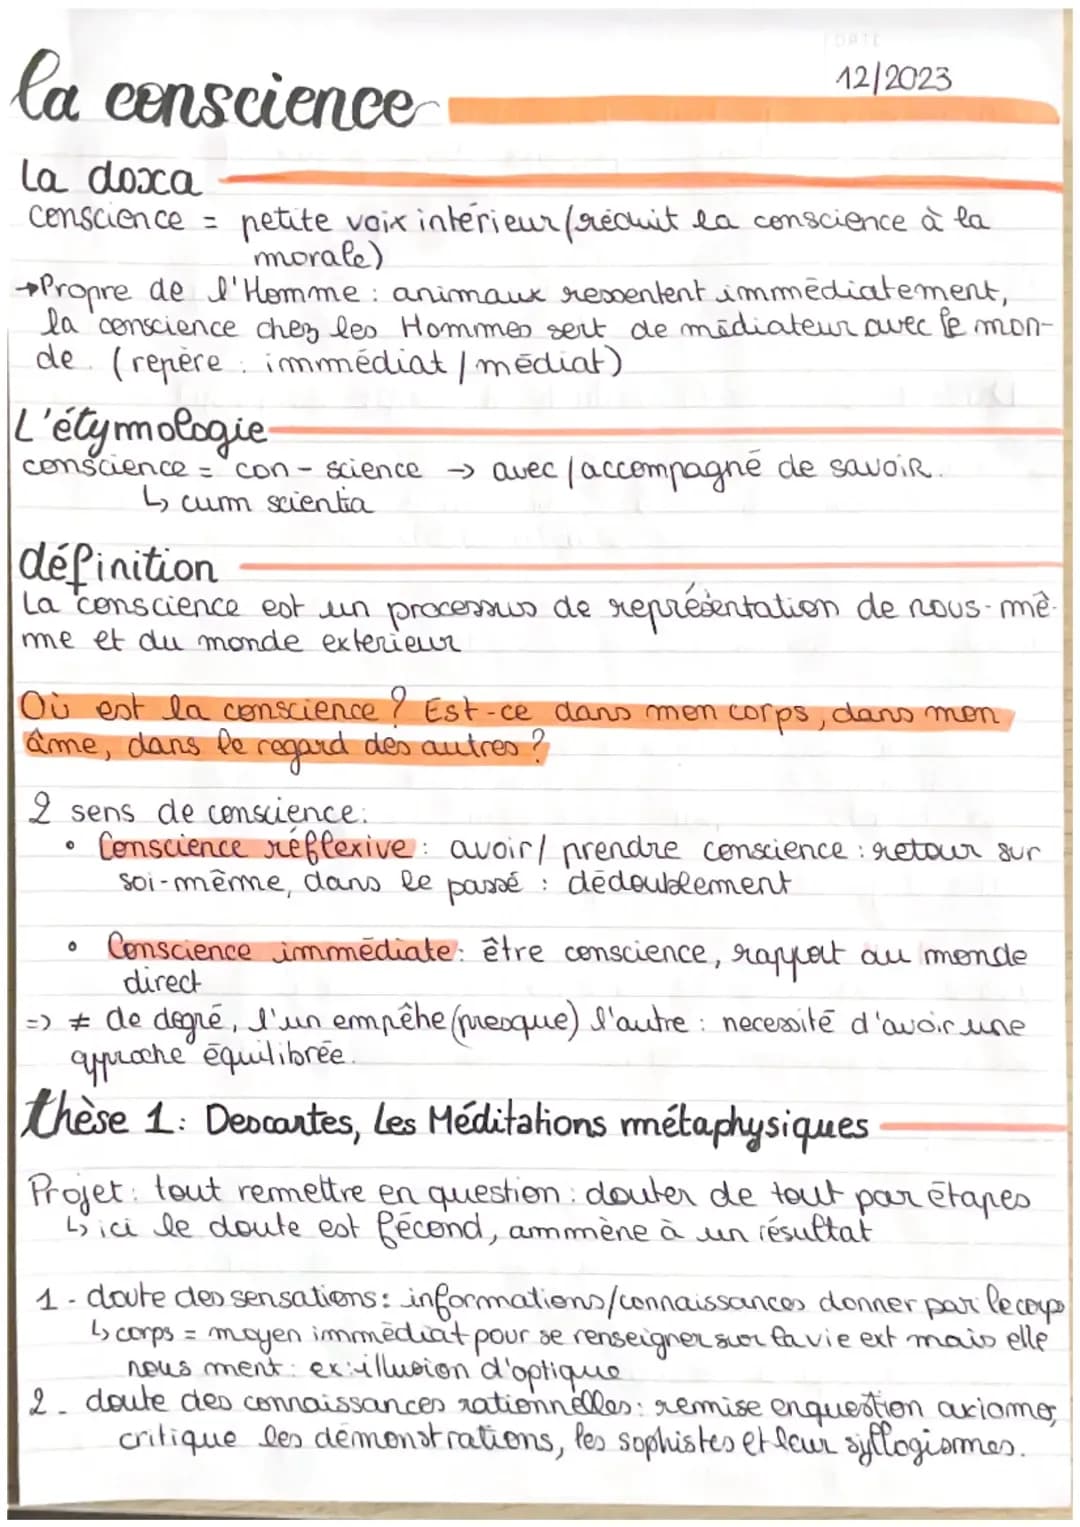 12/2023
la conscience
La doxa
conscience = petite voix intérieur (réduit la conscience à la
morale)
→Propre de l'Homme : animaux ressentent immédiatement,
la conscience chez les Hommes sert de médiateur avec le mon-
de. (repère : immédiat / médiat)
L'étymologie
conscience = con - science → avec / accompagné de savoir.
↳ cum scientia
définition
La conscience est un processus de représentation de nous-mê-
me et du monde exterieur
Où est la conscience ? Est-ce dans mon corps, dans mon
âme, dans le regard des autres ?
2 sens de conscience:
• Conscience réflexive : avoir/ prendre conscience : retour sur
soi-même, dans le passé : dédoublement
• Conscience immédiate : être conscience, rapport au monde
direct
=> ≠ de degré, l'un empêhe (presque) l'autre : necessité d'avoir une
approche équilibrée.
thèse 1 : Descartes, Les Méditations métaphysiques
Projet : tout remettre en question : douter de tout par étapes
↳ ici le doute est fécond, ammène à un résultat
1 - doute des sensations : informations/connaissances donner par le corps
↳ corps = moyen immédiat pour se renseigner sur la vie ext mais elle
nous ment : ex: illusion d'optique
2 - doute des connaissances rationnelles : remise en question axiomes,
critique les démonstrations, les sophistes et leur syllogismes.